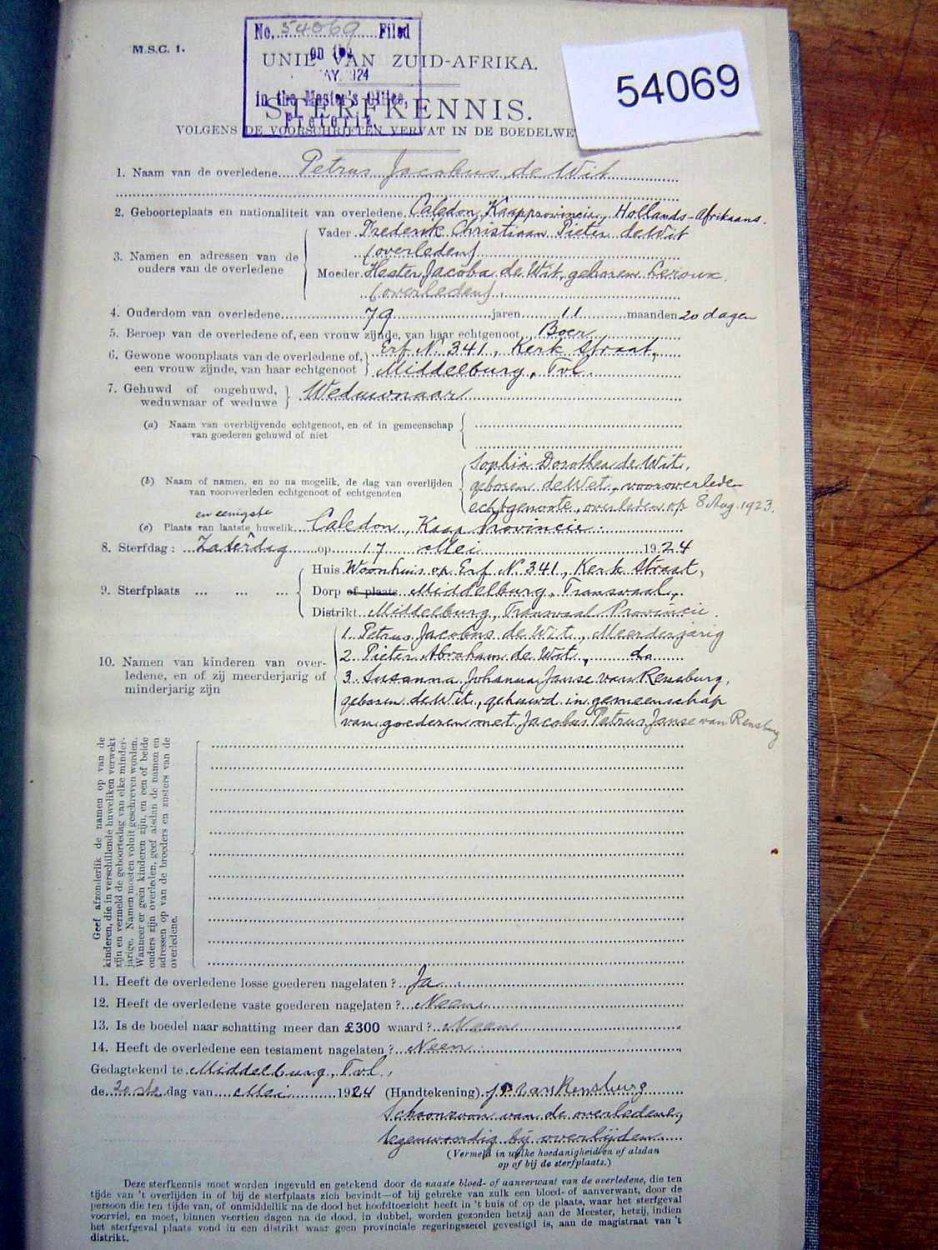 M.S.C. 1.
No. 54069 Filed
on the
AY. 1924
in the Master's Office,
Pretoria
54069
UNIE VAN ZUID-AFRIKA.
STERFKENNIS.
VOLGENS DE VOORSCHRIFTEN VERVAT IN DE BOEDELWE
1. Naam van de overledene Petrus Jacobus de Wit
2. Geboorteplaats en nationaliteit van overledene Caledon, Kaapprovincie, Hollands-Afrikaans.
3. Namen en adressen van de ouders van de overledene
Vader Frederik Christiaan Pieter de Wit
(overleden)
Moeder Hester Jacoba de Wit, geboren Leroux
(overleden)
4. Ouderdom van overledene 79 jaren 11 maanden 20 dagen
5. Beroep van de overledene of, een vrouw zijnde, van haar echtgenoot Boer
6. Gewone woonplaats van de overledene of, Erf No 341, Kerk Straat,
een vrouw zijnde, van haar echtgenoot Middelburg, Tvl.
7. Gehuwd of ongehuwd, weduwnaar of weduwe Weduwnaar
(a) Naam van overblijvende echtgenoot, en of in gemeenschap
van goederen gehuwd of niet
(b) Naam of namen, en zo na mogelik, de dag van overlijden
van vooroverleden echtgenoot of echtgenoten
Sophia Dorothea de Wit,
geboren de Wet, vooroverleden
echtgenote, overleden op 8 Aug. 1923.
en eenigste
(c) Plaats van laatste huwelik Caledon, Kaap Provincie.
8. Sterfdag: Zaterdag op 17 Mei 1924
9. Sterfplaats
Huis Woonhuis op Erf No 341, Kerk Straat,
Dorp of plaats Middelburg, Transvaal,
Distrikt Middelburg, Transvaal Provincie.
10. Namen van kinderen van overledene, en of zij meerderjarig of minderjarig zijn
1. Petrus Jacobus de Wit, Meerderjarig
2. Pieter Abraham de Wit, do
3. Susanna Johanna Janse van Rensburg,
geboren de Wit, gehuwd in gemeenschap
van goederen met Jacobus Petrus Janse van Rensburg
Geef afzonderlik de namen op van de
kinderen, die in verschillende huweliken verwekt
zijn en vermeld de geboortedag van elke minder-
jarige. Namen moeten voluit geschreven worden.
Wanneer er geen kinderen zijn, en een of beide
ouders zijn overleden, geef alsdan de namen en
adressen op van de broeders en zusters van de
overledene.
11. Heeft de overledene losse goederen nagelaten? Ja
12. Heeft de overledene vaste goederen nagelaten? Neen
13. Is de boedel naar schatting meer dan £300 waard? Neen
14. Heeft de overledene een testament nagelaten? Neen
Gedagtekend te Middelburg, Tvl.
de 20ste dag van Mei 1924 (Handtekening) van Rensburg
Schoonzoon van de overledene,
tegenwoordig bij overlijden
(Vermeld in welke hoedanigheid en of alsdan
op of bij de sterfplaats.)
Deze sterfkennis moet worden ingevuld en getekend door de naaste bloed- of aanverwant van de overledene, die ten
tijde van 't overlijden in of bij de sterfplaats zich bevindt—of bij gebreke van zulk een bloed- of aanverwant, door de
persoon die ten tijde van, of onmiddellik na de dood het hoofdtoezicht heeft in 't huis of op de plaats, waar het sterfgeval
voorviel, en moet, binnen veertien dagen na de dood, in dubbel, worden gezonden hetzij aan de Meester, hetzij, indien
het sterfgeval plaats vond in een distrikt waar geen provinciale regeringszetel gevestigd is, aan de magistraat van 't
distrikt.